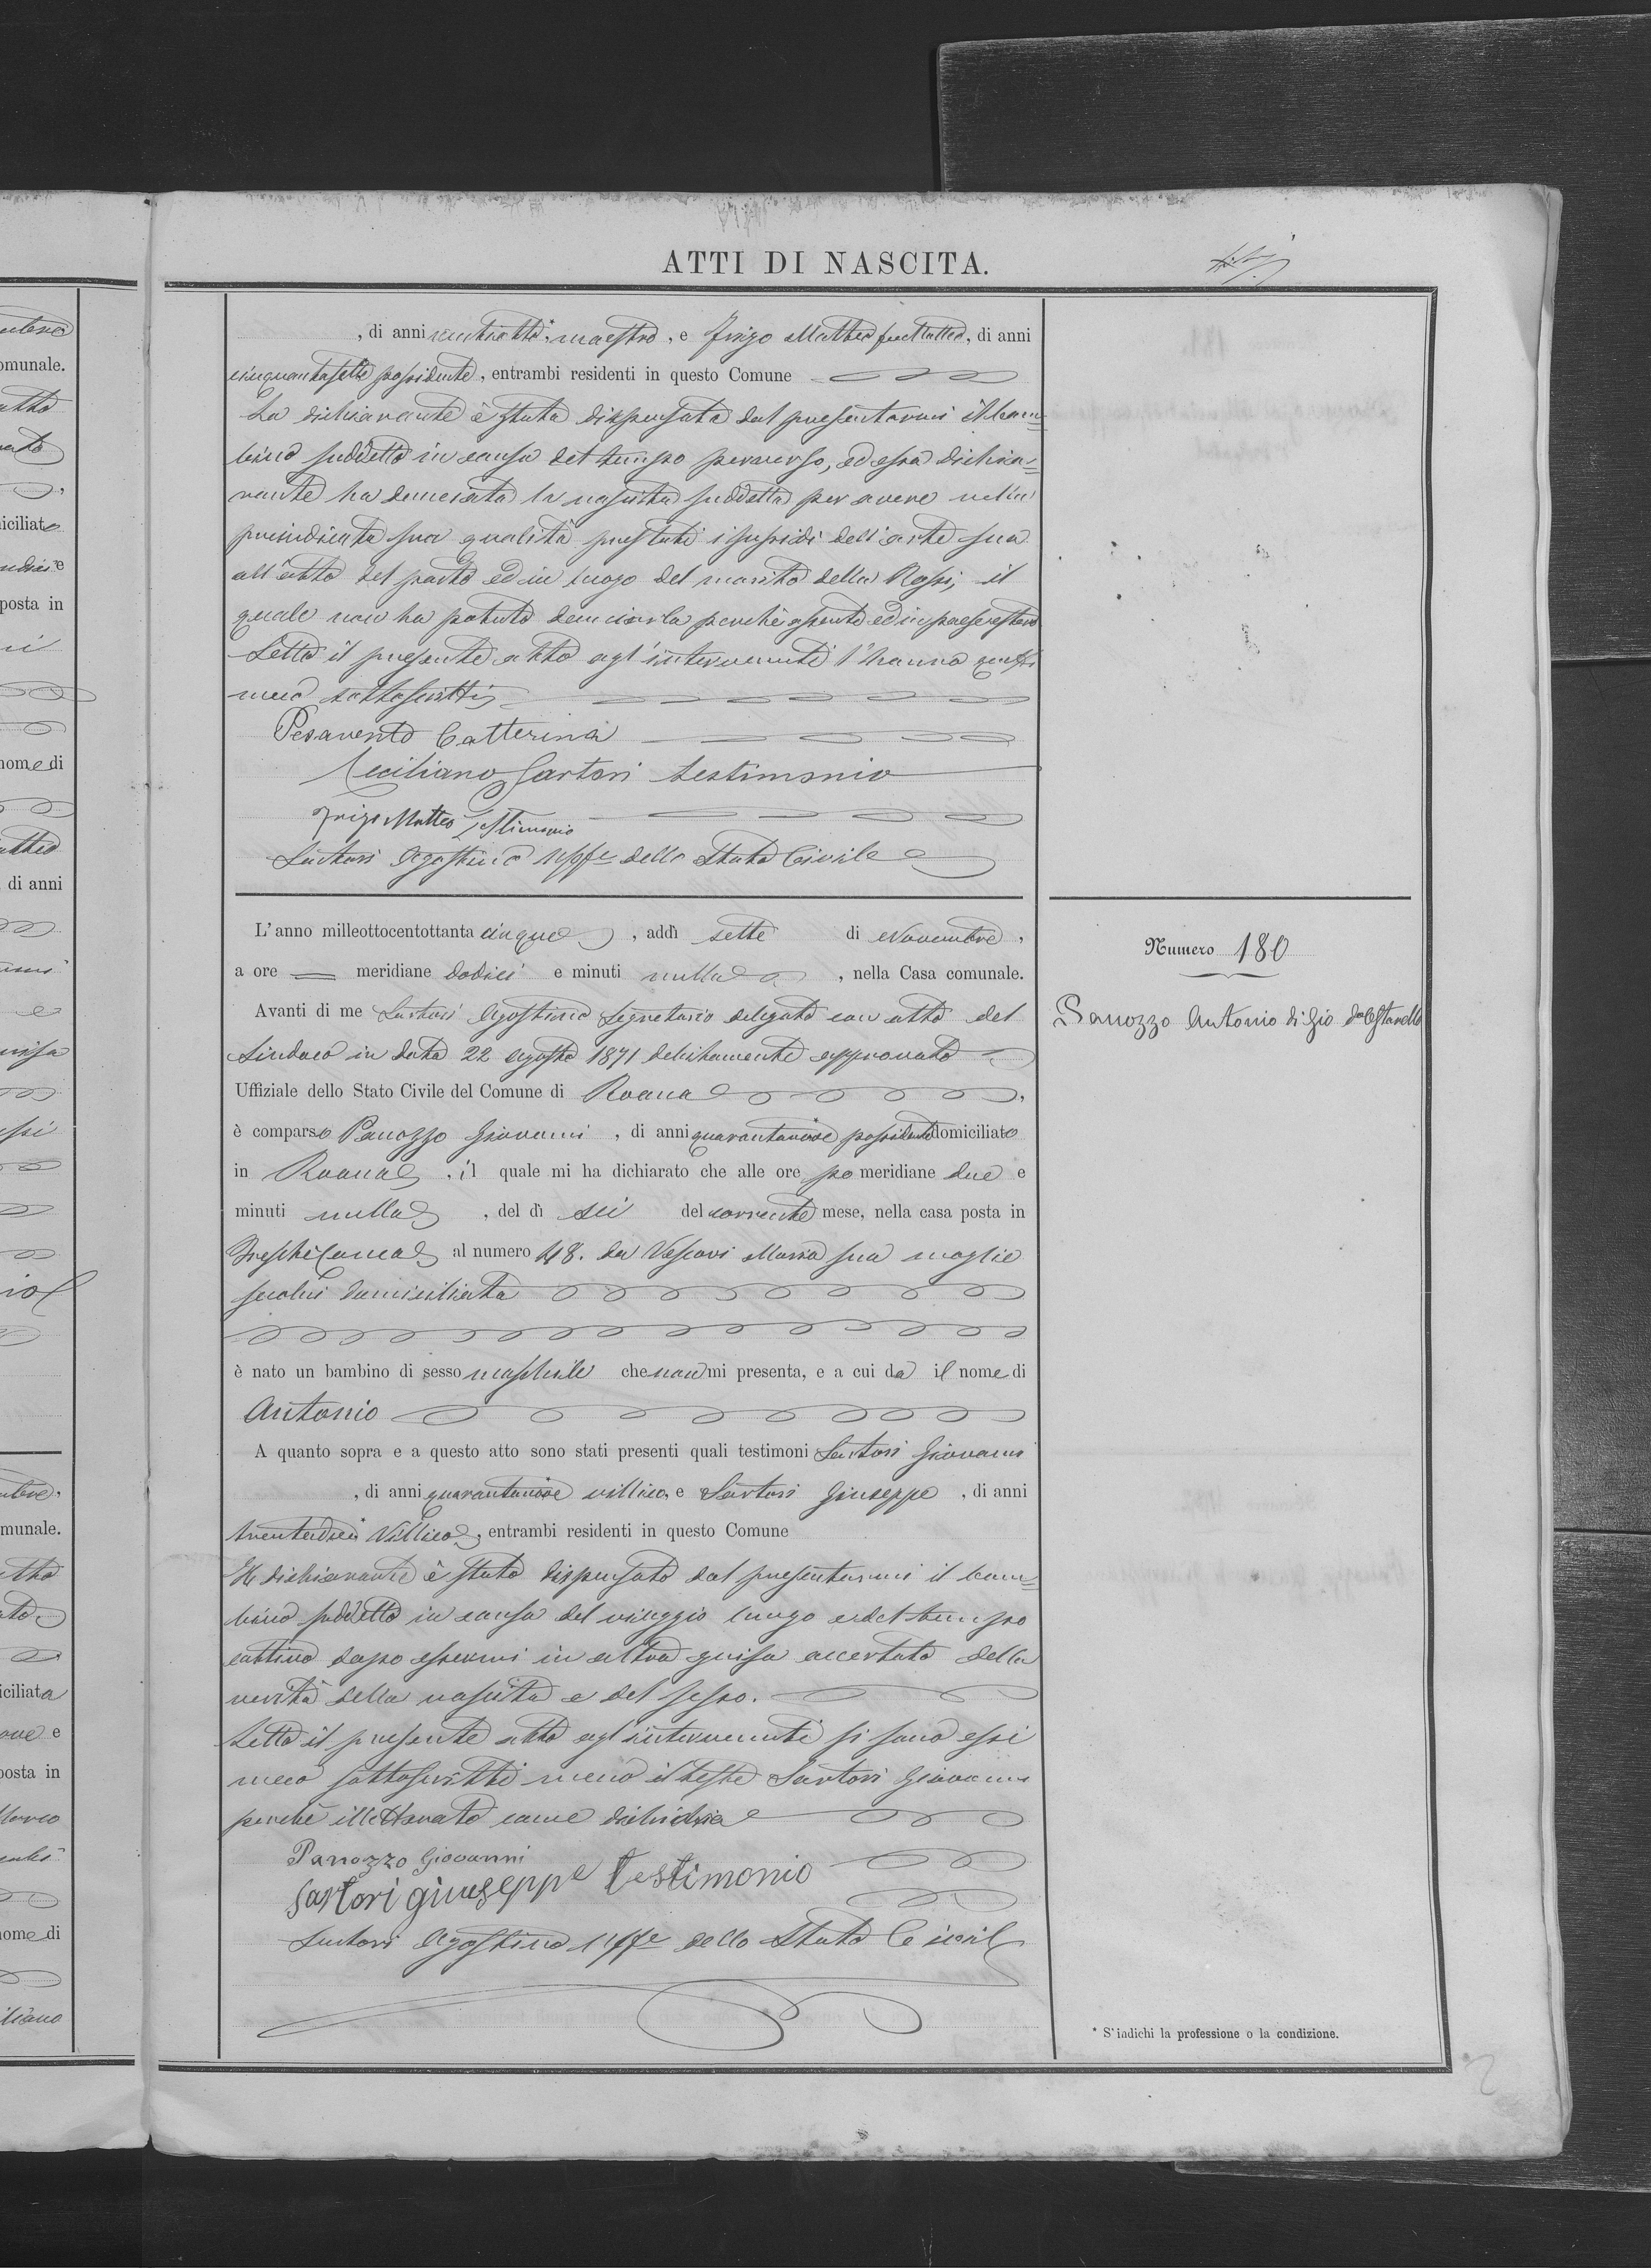 ATTI DI NASCITA.
, di anni ventiotto, maestro, e Frigo Matteo fu Matteo, di anni
cinquantasette possidente, entrambi residenti in questo Comune
La dichiarante è stata dispensata dal presentarmi il bam=
bino suddetto in causa del tempo perverso, ed essa dichia=
rante ha denunciata la nascita suddetta per avere nella
preindicata sua qualità prestati i sussidi dell'arte sua
all'atto del parto ed in luogo del marito della Rossi, il
quale non ha potuto denunciarla perchè assente ed in paese estero
Letto il presente atto agl'intervenuti l'hanno questi
meco sottoscritti
Pesavento Catterina
Ceciliano Sartori testimonio
Frigo Matteo testimonio
Sartori Agostino Uffle dello Stato Civile
L'anno milleottocentottanta cinque, addì sette di Novembre,
a ore meridiane dodici e minuti nulla, nella Casa comunale.
Avanti di me Sartori Agostino Segretario delegato con atto del
Sindaco in data 22 Agosto 1871 debitamente approvato
Uffiziale dello Stato Civile del Comune di Roana,
è comparso Panozzo Giovanni, di anni quarantanove possidente domiciliato
in Roana, il quale mi ha dichiarato che alle ore po meridiane due e
minuti nulla, del dì sei del corrente mese, nella casa posta in
Treschè Conca al numero 48. da Vescovi Maria sua moglie
secolui domiciliata
è nato un bambino di sesso maschile che non mi presenta, e a cui dà il nome di
Antonio
A quanto sopra e a questo atto sono stati presenti quali testimoni Sartori Giovanni
, di anni quarantanove villico, e Sartori Giuseppe, di anni
Villico, entrambi residenti in questo Comune
Il dichiarante è stato dispensato dal presentarmi il bam=
bino suddetto in causa del viaggio lungo e del tempo
cattivo dopo essermi in altra guisa accertato della
verità della nascita e del sesso.
Letto il presente atto agl'intervenuti si sono essi
meco sottoscritti meno il teste Sartori Giovanni
perchè illetterato come dichiara
Panozzo Giovanni
Sartori giuseppe testimonio
Sartori Agostino Uffle dello Stato Civile
Numero 180
Panozzo Antonio di Gio
* S'indichi la professione o la condizione.